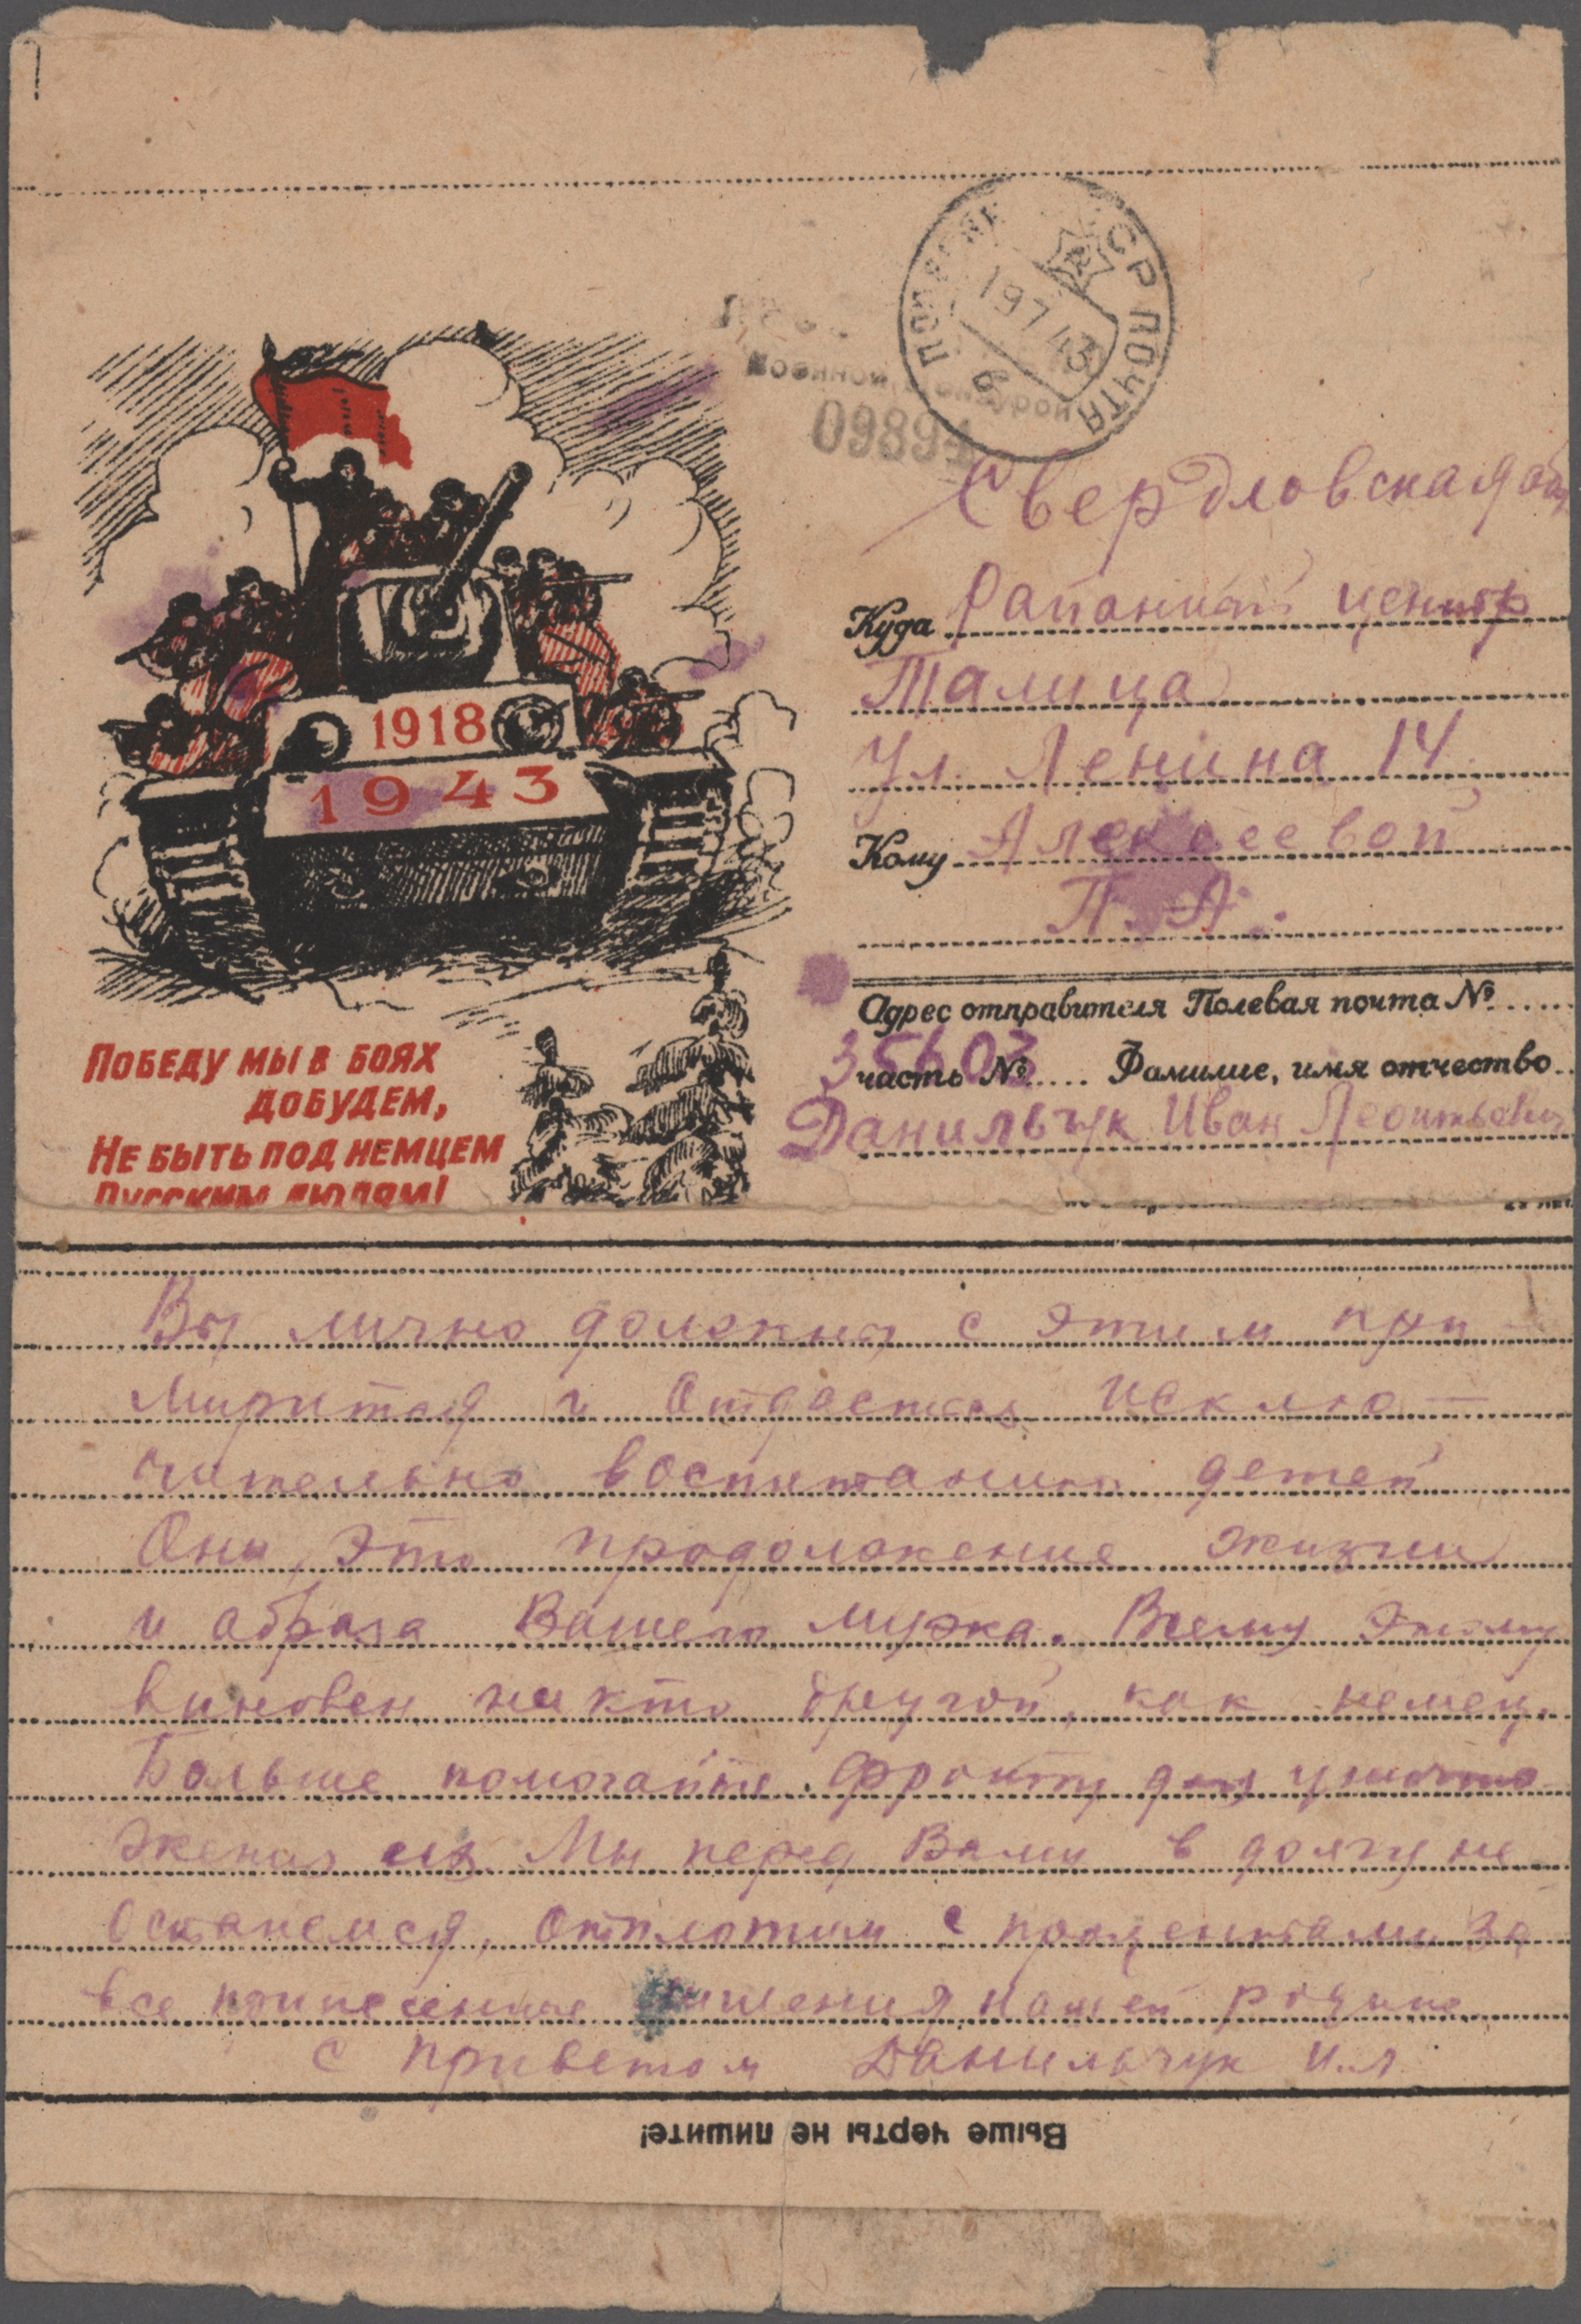 ПОЧТА
19 7 43
6
09894
Свердловская обл
Куда Районный центр
Талица
Ул. Ленина 14.
Кому Алексеевой
П. А.
Адрес отправителя Полевая почта №.....
35603
часть №..... Фамилие, имя отчество..
Данильчук Иван Леонтьевич
1918
1943
ПОБЕДУ МЫ В БОЯХ
ДОБУДЕМ,
НЕ БЫТЬ ПОД НЕМЦЕМ
РУССКИМ ЛЮДЯМ!
Вы лично должны с этим при-
мирится и отдасться исклю-
чительно воспитанию детей
Они, это продолжение жизни
и образа Вашего мужа. Всему этому
виновен никто другой, как немец.
Больше помогайте фронту для уничто-
жения их. Мы перед Вами в долгу не
останемся, отплотим с процентами за
все принесенные лишения нашей родине
с приветом Данильчук И.Л
Выше черты не пишите!